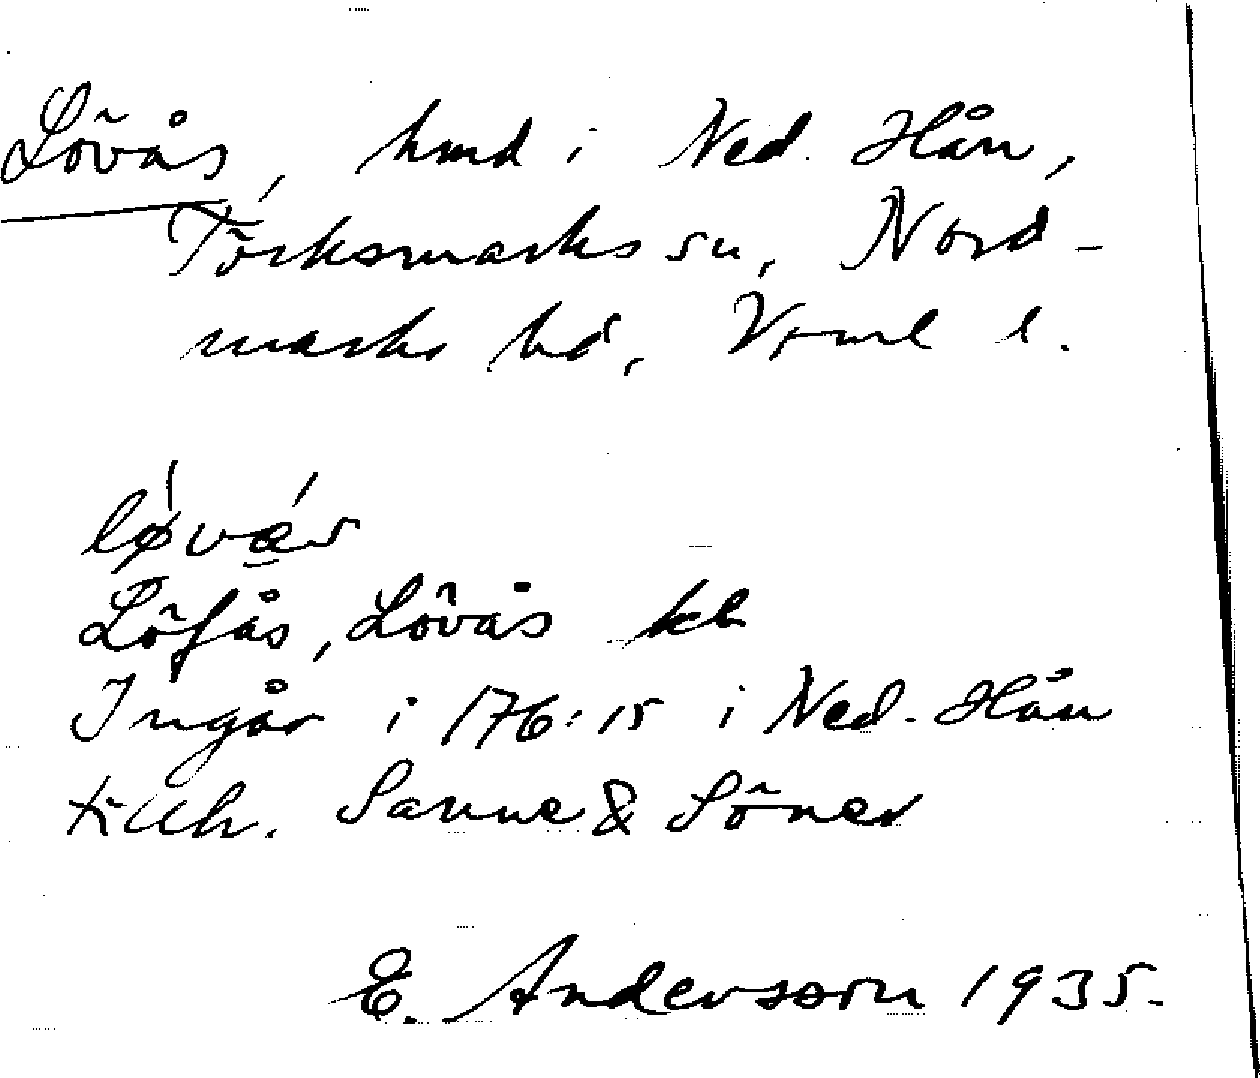 Lövås, hmd i Ned. Hån,
Törksmarks sn, Nord-
marks hd, Vrml l.
Löfås, Lövås kb
Ingår i 176:15 i Ned. Hån
tillh. Sanne & Söner
E. Andersson 1935.